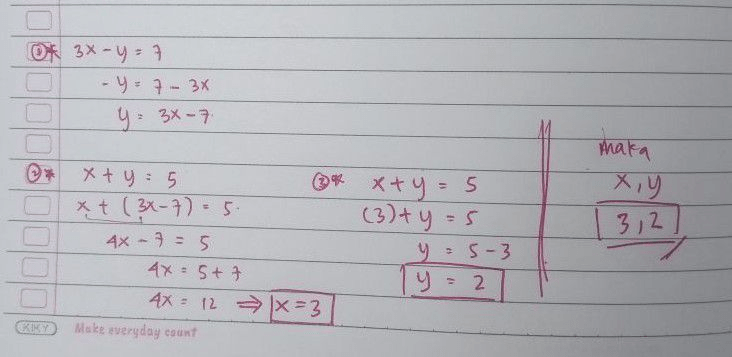 ①* 3x - y = 7
- y = 7 - 3x
y = 3x - 7
②* x + y = 5
x + (3x - 7) = 5
4x - 7 = 5
4x = 5 + 7
4x = 12 ⇒ x = 3
③* x + y = 5
(3) + y = 5
y = 5 - 3
y = 2
maka
x, y
3, 2
KIKY Make everyday count